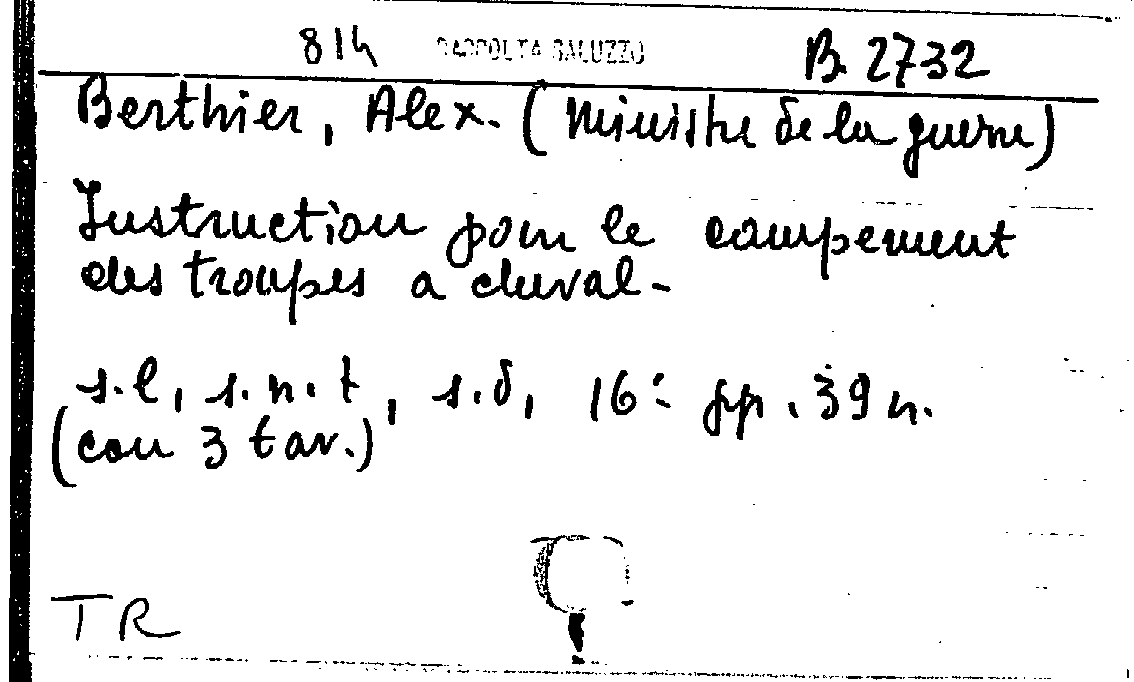 814 RACCOLTA SALUZZO B. 2732
Berthier, Alex. (Ministre de la guerre)
Instruction pour le campement
des troupes a cheval-
s.l, s.n.t, s.d, 16° pp. 39 n.
(con 3 tav.)
TR